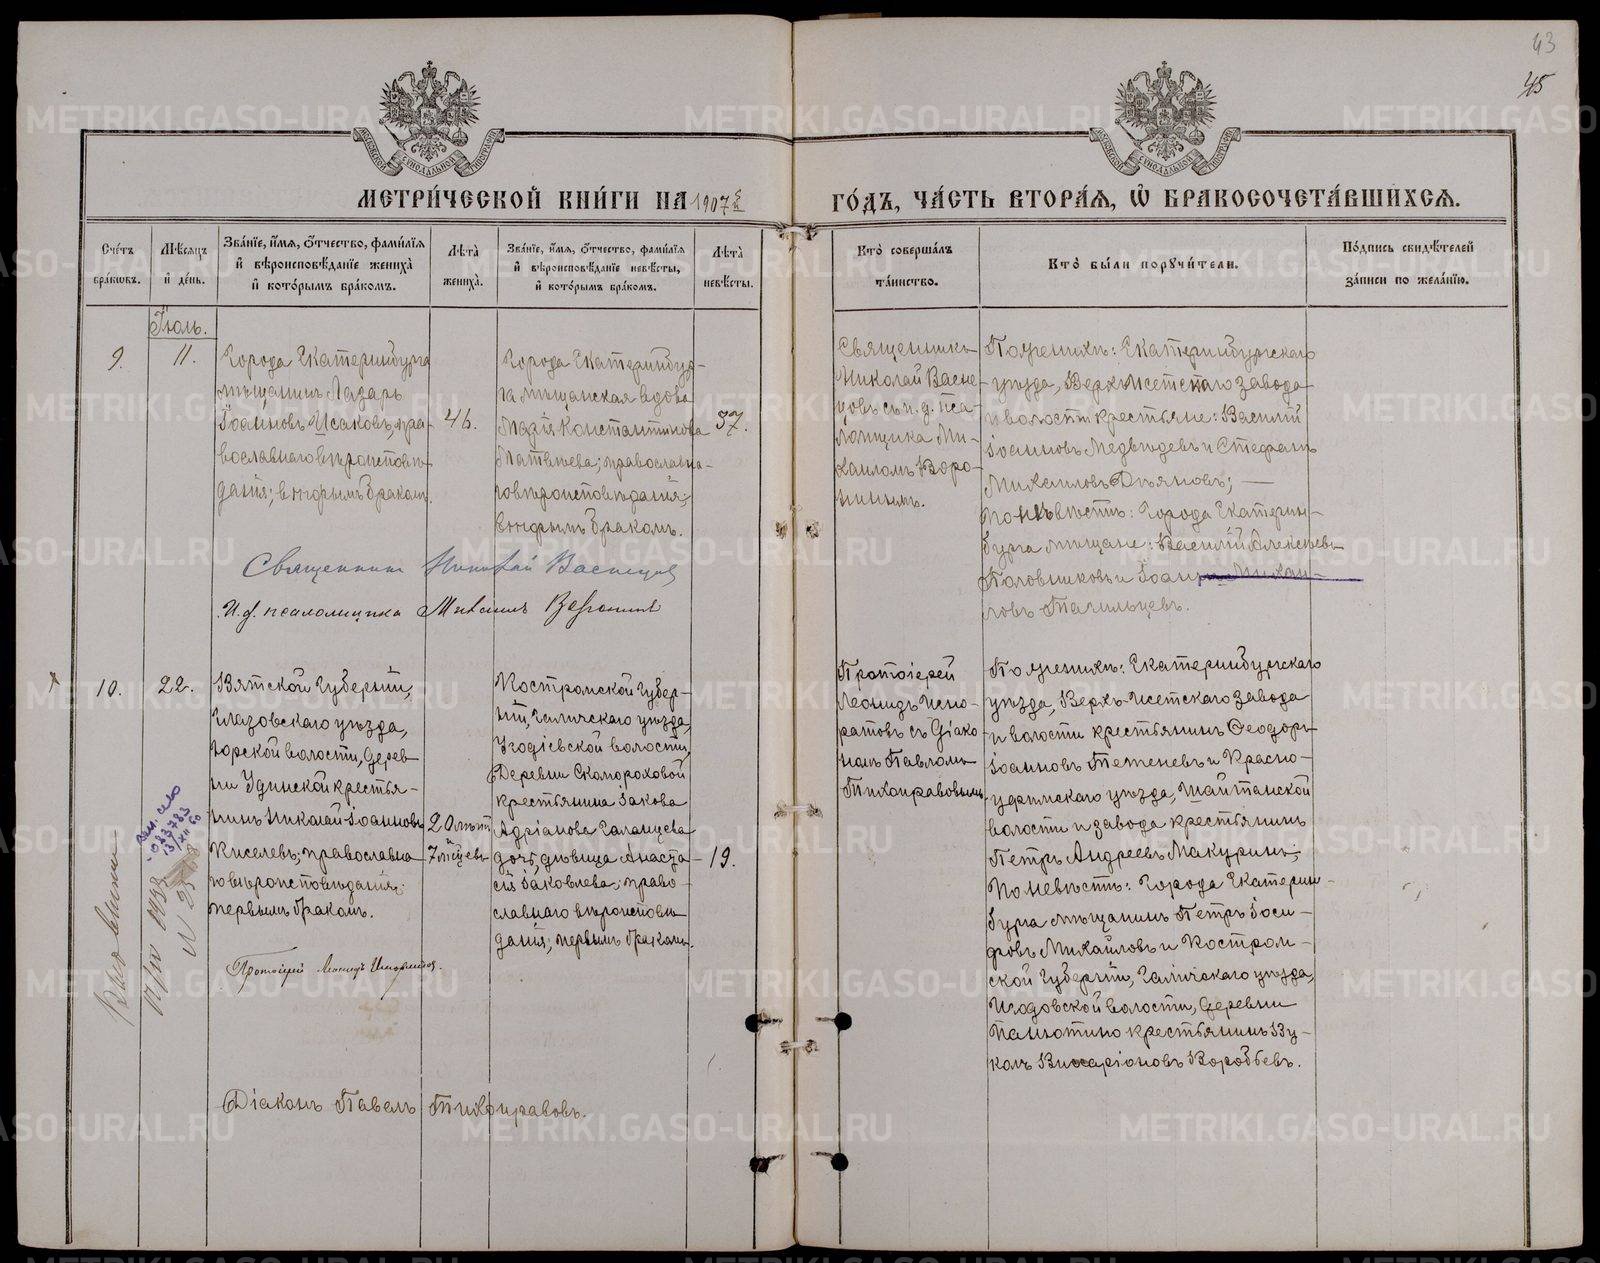 43
45
МЕТРИ́ЧЕСКОЙ КНИ́ГИ НА 1907 й
ГО́ДЪ, ЧА́СТЬ ВТОРА́Я, Ѡ БРАКОСОЧЕТА́ВШИХСЯ.
Сче́тъ бра́ковъ.
Мѣ́сяцъ и де́нь.
Зва́нїе, и́мя, ѻ́тчество, фами́лїя
и вѣроисповѣ́данїе жениха̀
и кото́рымъ бра́комъ.
Лѣта̀ жениха̀.
Зва́нїе, и́мя, ѻ́тчество, фами́лїя
и вѣроисповѣ́данїе невѣ́сты,
и кото́рымъ бра́комъ.
Лѣта̀ невѣ́сты.
Кто̀ соверша́лъ
та́инство.
Кто̀ бы́ли порꙋчи́тели.
По́дпись свидѣ́телей
за́писи по жела́нїю.
Іюль.
9.
11.
Города Екатеринбурга
мѣщанинъ Лазарь
Іоанновъ Исаковъ, пра-
вославнаго вѣроисповѣ-
данія; вторымъ бракомъ.
46.
Города Екатеринбур-
га мѣщанская вдова
Марія Константинова
Матвѣева; православна-
го вѣроисповѣданія;
вторымъ бракомъ.
37.
Священникъ
Николай Васне-
цовъ съ и. д. пса-
ломщика Ми-
хаиломъ Воро-
нинымъ.
По женихѣ: Екатеринбургскаго
уѣзда, Верхъ-Исетскаго завода
и волости крестьяне: Василій
Іоанновъ Медвѣдевъ и Стефанъ
Михаиловъ Дѣяновъ; —
по невѣстѣ: города Екатерин-
бурга мѣщане: Василій Алексѣевъ
Половниковъ и Іоаннъ Михаи-
ловъ Тагильцевъ.
Священникъ Николай Васнецовъ
И. д. псаломщика Михаилъ Воронинъ
10.
22.
Вятской губерніи,
Глазовскаго уѣзда,
Юрской волости, дерев-
ни Удинской крестья-
нинъ Николай Іоанновъ
Киселевъ; православна-
го вѣроисповѣданія;
первымъ бракомъ.
20 лѣтъ
7 мѣсцевъ
Костромской губер-
ніи, Галичскаго уѣзда,
Игодіевской волости,
деревни Скомороховой
крестьянина Іакова
Адріанова Галанцева
дочь, дѣвица Анаста-
сія Іаковлева; право-
славнаго вѣроисповѣ-
данія; первымъ бракомъ.
19.
Протоіерей
Леонидъ Игно-
ратовъ съ діако-
номъ Павломъ
Тихонравовымъ
По женихѣ: Екатеринбургскаго
уѣзда, Верхъ-Исетскаго завода
и волости крестьянинъ Ѳеодоръ
Іоанновъ Тетеневъ и Красно-
уфимскаго уѣзда, Шайтанской
волости и завода крестьянинъ
Петръ Андреевъ Макуринъ;
по невѣстѣ: города Екатерин-
бурга мѣщанинъ Петръ Іоси-
фовъ Михаиловъ и Костром-
ской губерніи, Галичскаго уѣзда,
Игодовской волости, деревни
Панютино крестьянинъ Ву-
колъ Виссаріоновъ Воробьевъ.
Протоіерей Леонидъ
Діаконъ Павелъ Тихонравовъ.
METRIKI.GASO-URAL.RU